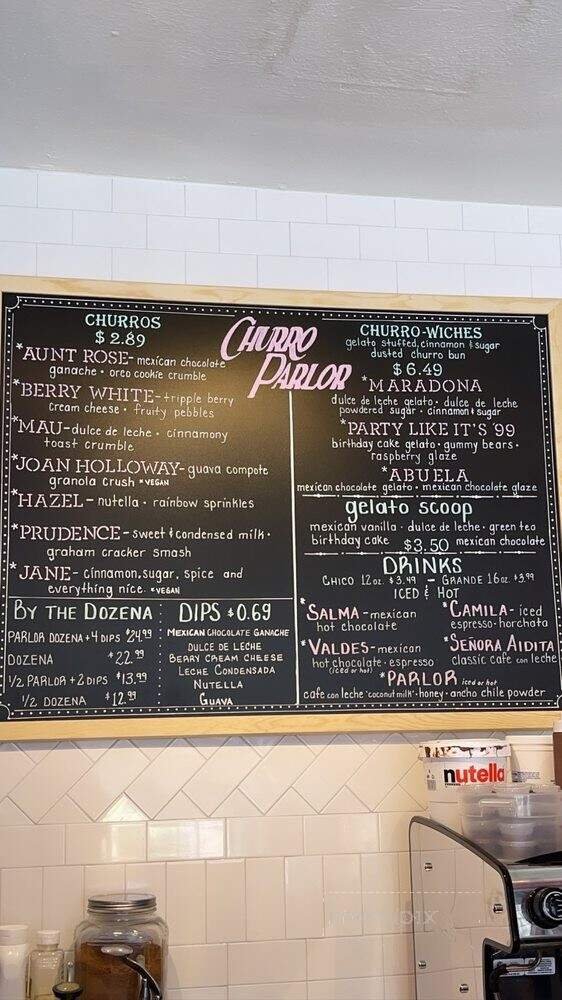 CHURRO
PARLOR
CHURROS
$2.89
*AUNT ROSE- mexican chocolate
ganache · oreo cookie crumble
*BERRY WHITE- tripple berry
cream cheese · fruity pebbles
*MAU- dulce de leche · cinnamony
toast crumble
*JOAN HOLLOWAY- guava compote
granola crush *VEGAN
*HAZEL- nutella · rainbow sprinkles
*PRUDENCE- sweet & condensed milk ·
graham cracker smash
*JANE- cinnamon, sugar, spice and
everything nice *VEGAN
BY THE DOZENA
PARLOR DOZENA + 4 DIPS $24.99
DOZENA $22.99
1/2 PARLOR + 2 DIPS $13.99
1/2 DOZENA $12.99
DIPS $0.69
MEXICAN CHOCOLATE GANACHE
DULCE DE LECHE
BERRY CREAM CHEESE
LECHE CONDENSADA
NUTELLA
GUAVA
CHURRO-WICHES
gelato stuffed, cinnamon & sugar
dusted churro bun
$6.49
*MARADONA
dulce de leche gelato · dulce de leche
powdered sugar · cinnamon & sugar
*PARTY LIKE IT'S '99
birthday cake gelato · gummy bears ·
raspberry glaze
*ABUELA
mexican chocolate gelato · mexican chocolate glaze
gelato scoop
mexican vanilla · dulce de leche · green tea
birthday cake $3.50 mexican chocolate
DRINKS
CHICO 12oz. $3.49 - GRANDE 16oz. $3.99
ICED & HOT
*SALMA- mexican
hot chocolate
*CAMILA- iced
espresso · horchata
*VALDES- mexican
hot chocolate · espresso
(iced or hot)
*SEÑORA AIDITA
classic cafe con leche
*PARLOR iced or hot
cafe con leche "coconut milk" · honey · ancho chile powder
nutella